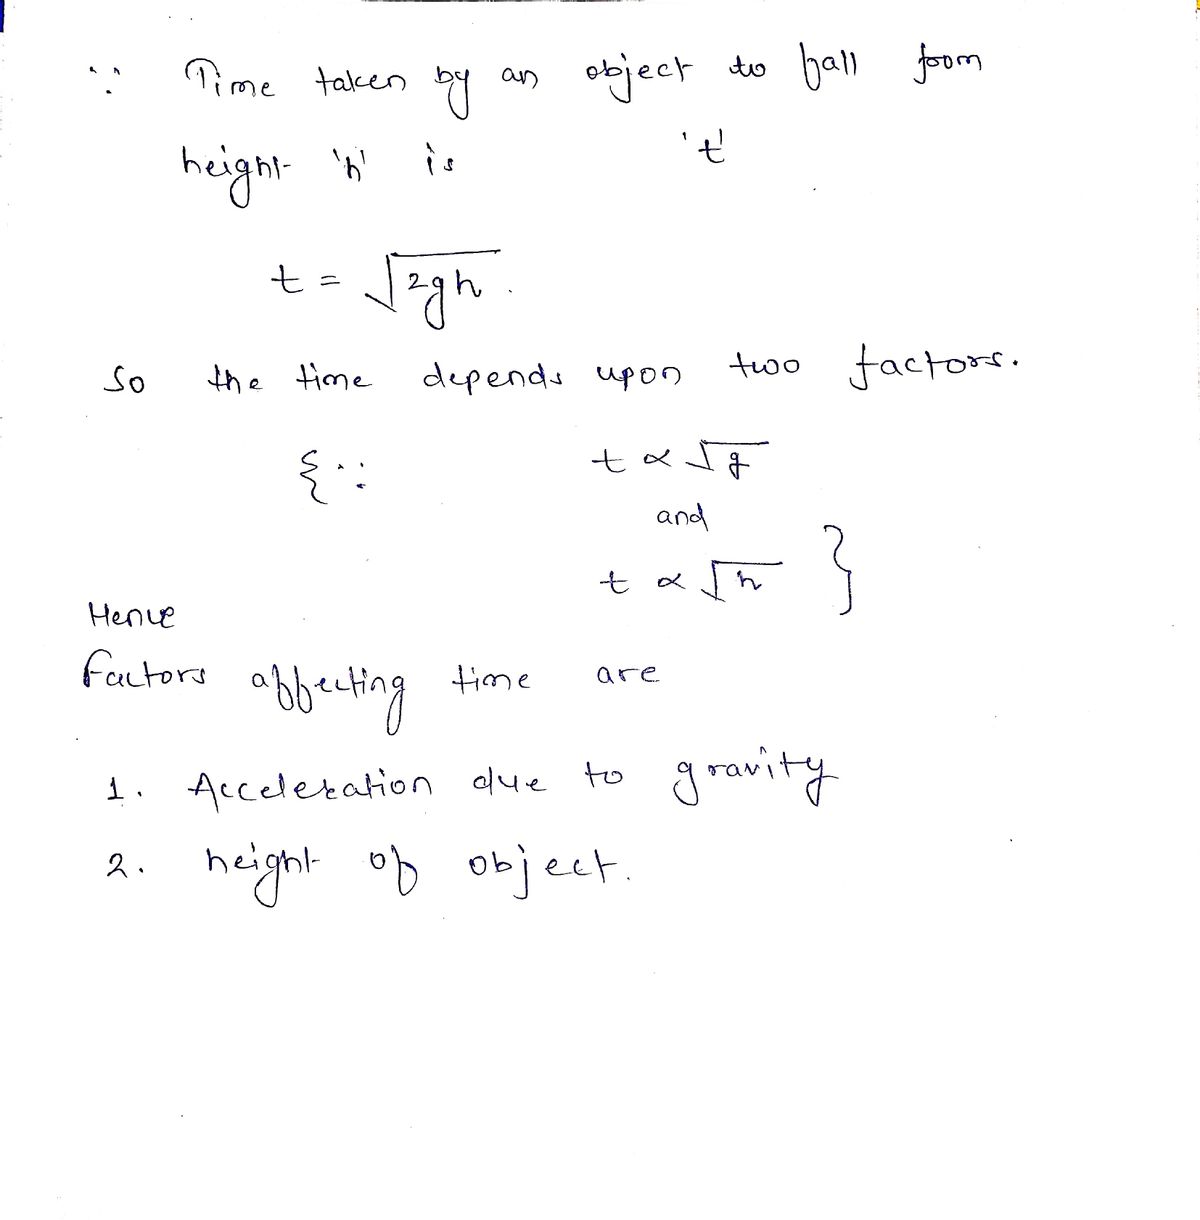 ∵ Time taken by an object to fall from
height 'h' is 't'
t = √2gh .
So the time depends upon two factors.
{ ∵ t ∝ √g
and
t ∝ √h }
Hence
Factors affecting time are
1. Acceleration due to gravity
2. height of object.